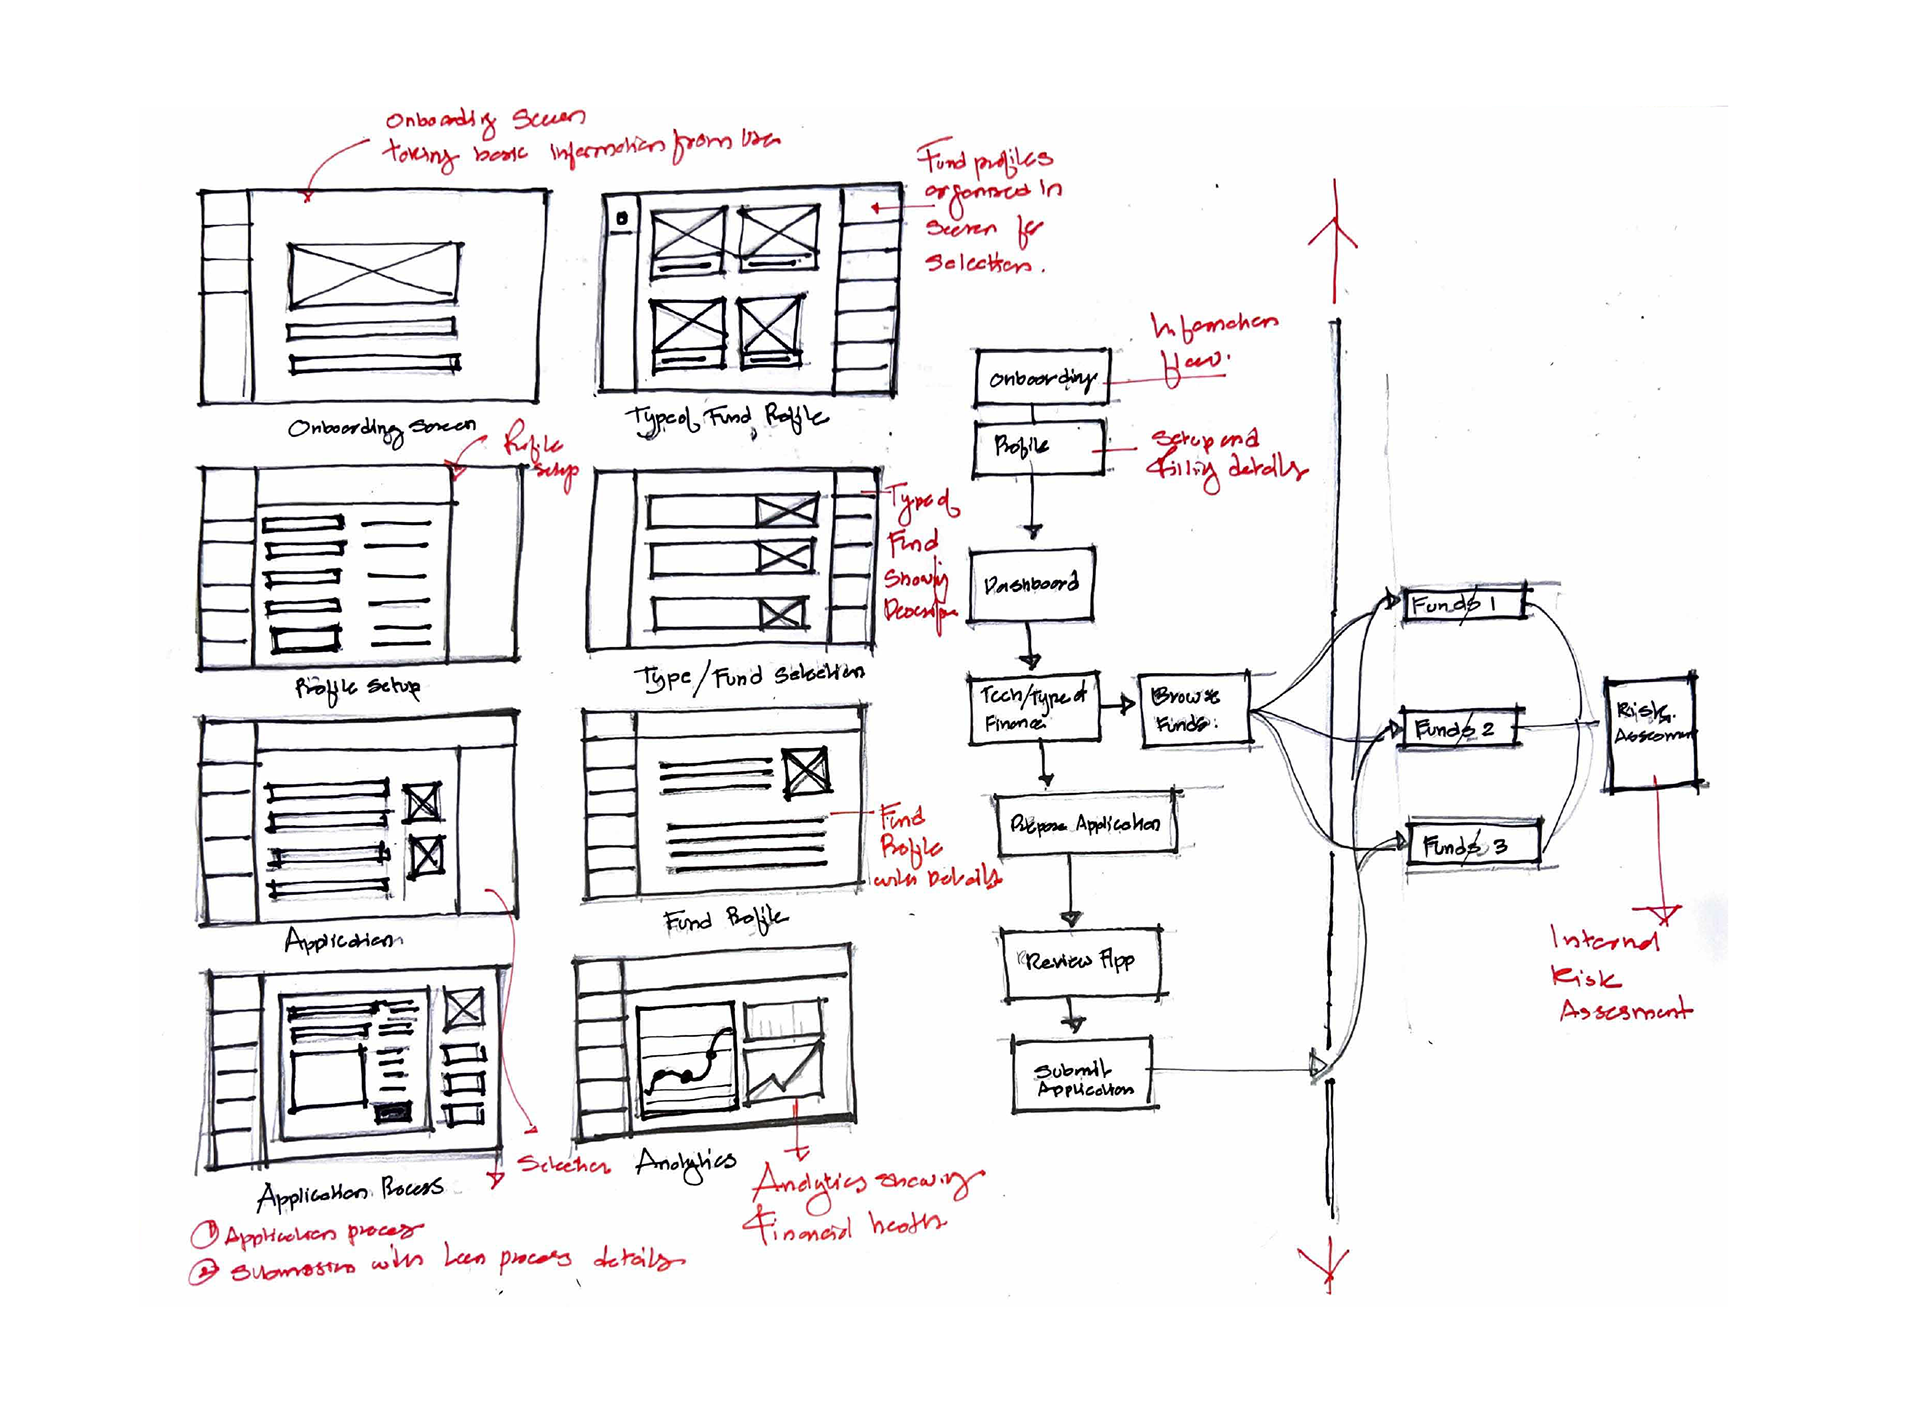 Onboarding Screen
taking basic information from User
Onboarding Screen
Fund profiles
organised in
screen for
selection.
Type of Fund Profile
Profile
setup
Profile Setup
Type of
Fund
Showing
Type/Fund Selection
Application
Fund
Profile
with Details
Fund Profile
Selection
Application Process
① Application process
② Submission with process details
Analytics
Analytics showing
Financial health
Information
flow.
Onboarding
Profile
Setup and
filling details
Dashboard
Tech/Type of
Finance
Browse
Funds.
Prepare Application
Review App
Submit
Application
Funds 1
Funds 2
Funds 3
Risk
Internal
Risk
Assesment